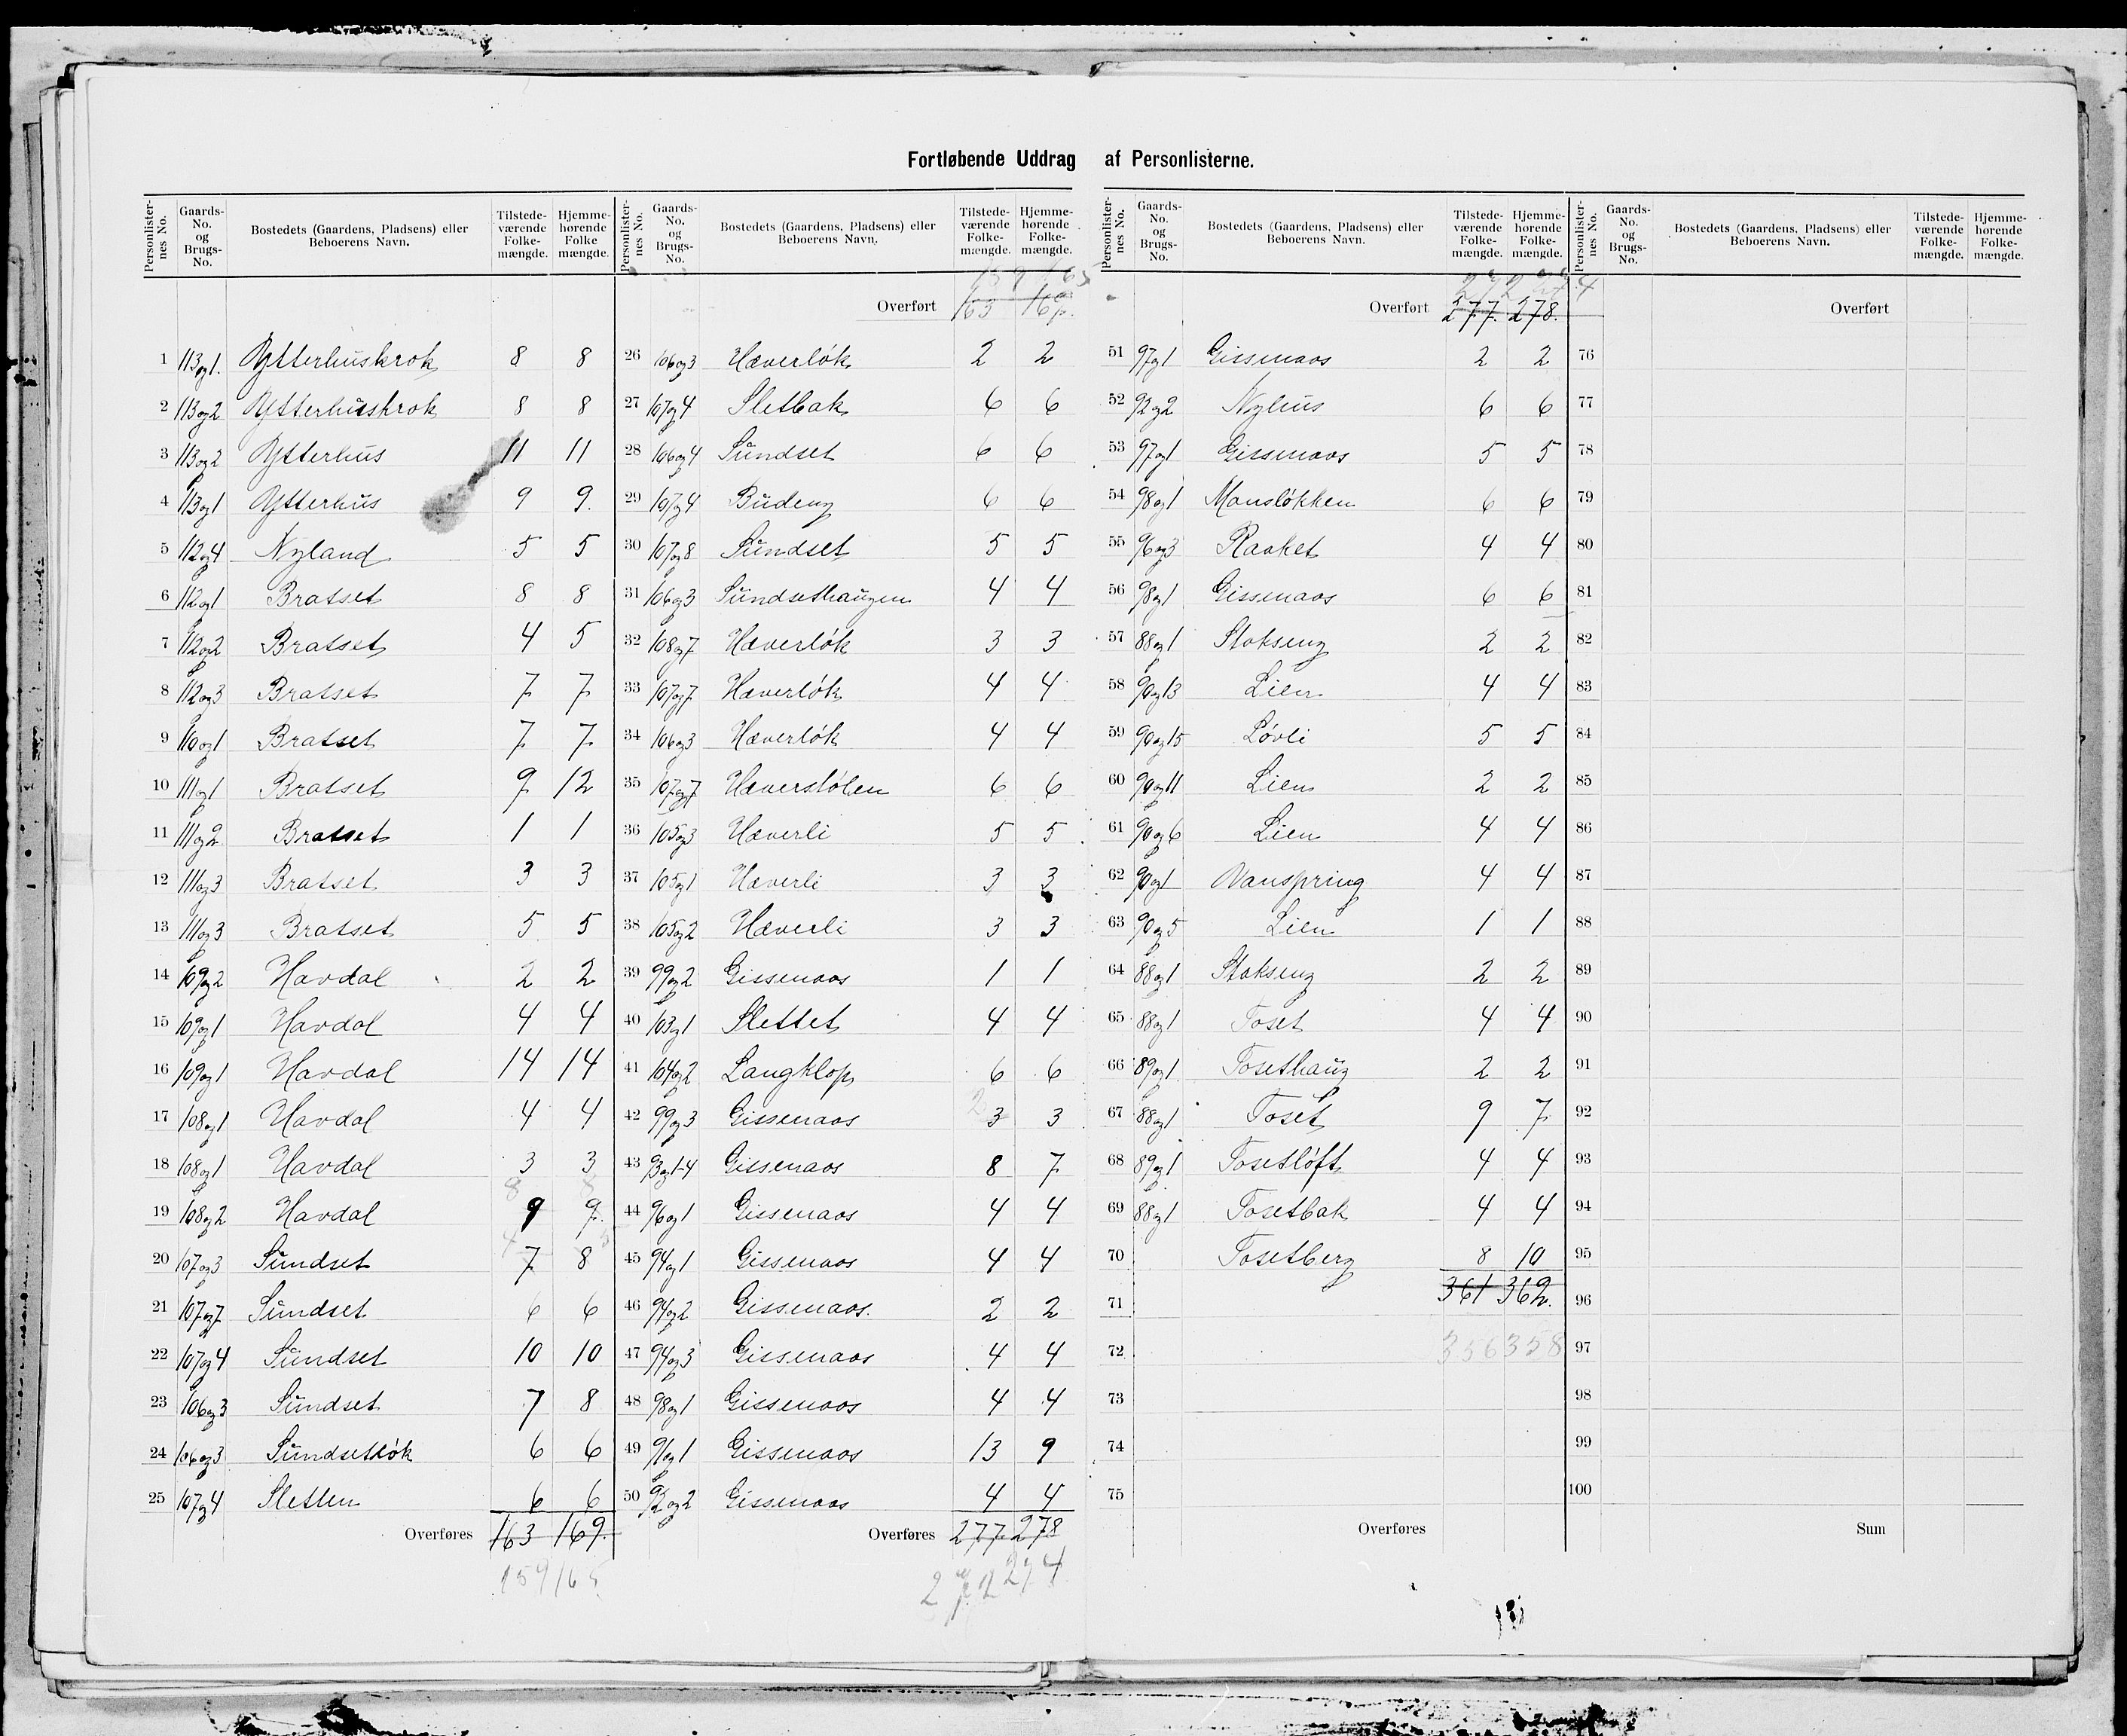 Fortløbende Uddrag af Personlisterne.
Personlister-nes No. Gaards-No. og Brugs-No. Bostedets (Gaardens, Pladsens) eller Beboerens Navn. Tilstede-værende Folke-mængde. Hjemme-hørende Folke mængde.
1 113og1. Ytterhuskrok 8 8
2 113og2 Ytterhuskrok 8 8
3 113og2 Ytterhus 11 11
4 113og1 Ytterhus 9 9.
5 112og4 Nyland 5 5
6 112og1 Bratset 8 8
7 112og2 Bratset 4 5
8 112og3 Bratset 7 7
9 110og1 Bratset 7 7
10 111og1 Bratset 9 12
11 111og2 Bratset 1 1
12 111og3 Bratset 3 3
13 111og3 Bratset 5 5
14 109og2 Havdal 2 2
15 109og1 Havdal 4 4
16 109og1 Havdal 14 14
17 108og1 Havdal 4 4
18 108og1 Havdal 3 3
8 8
19 108og2 Havdal 9 9.
4
20 107og3 Sundset 7 8
21 107og7 Sundset 6 6
22 107og4 Sundset 10 10
23 106og3 Sundset 7 8
24 106og3 Sundsetløk 6 6
25 107og4 Sletten 6 6
Overføres 163 169.
159 165
Personlister-nes No. Gaards-No. og Brugs-No. Bostedets (Gaardens, Pladsens) eller Beboerens Navn. Tilstede-værende Folke-mængde. Hjemme-hørende Folke-mængde.
159 165
Overført 163 169.
26 106og3 Hæverløk 2 2
27 107og4 Sletbak 6 6
28 106og4 Sundset 6 6
29 107og4 Budeng 6 6
30 107og8 Sundset 5 5
31 106og3 Sundsethaugen 4 4
32 108og7 Hæverløk 3 3
33 107og7 Hæverløk 4 4
34 106og3 Hæverløk 4 4
35 107og7 Hæverstølen 6 6
36 105og3 Hæverli 5 5
37 105og1 Hæverli 3 3
38 105og2 Hæverli 3 3
39 99og2 Gissenaas 1 1
40 103og1 Slettet 4 4
41 104og2 Langklop 6 6
2
42 99og3 Gissenaas 3 3
43 93og1-4 Gissenaas 8 7
44 96og1 Gissenaas 4 4
45 94og1 Gissenaas 4 4
46 94og2 Gissenaas. 2 2
47 94og3 Gissenaas 4 4
48 98og1 Gissenaas 4 4
49 91og1 Gissenaas 13 9
50 92og2 Gissenaas 4 4
Overføres 277 278
272 274
Personlister-nes No. Gaards-No. og Brugs-No. Bostedets (Gaardens, Pladsens) eller Beboerens Navn. Tilstede-værende Folke-mængde. Hjemme-hørende Folke-mængde.
272 274
Overført 277. 278.
51 97og1 Gissenaas 2 2
52 92og2 Nyhus 6 6
53 97og1 Gissenaas 5 5
54 98og1 Mansløkken 6 6
55 96og3 Raaket 4 4
56 98og1 Gissenaas 6 6
57 88og1 Stokseng 2 2
58 90og13 Lien 4 4
59 90og15 Løvli 5 5
60 90og11 Lien 2 2
61 90og6 Lien 4 4
62 90og1 Vanspring 4 4
63 90og5 Lien 1 1
64 88og1 Stokseng 2 2
65 88og1 Toset 4 4
66 89og1 Tosethaug 2 2
67 88og1 Toset 9 7
68 89og1 Tosetløft 4 4
69 88og1 Tosetbak 4 4
70 Tosetberg 8 10
361 362.
71
72 356 358
73
74
75
Overføres
Personlister-nes No. Gaards-No. og Brugs-No. Bostedets (Gaardens, Pladsens) eller Beboerens Navn. Tilstede-værende Folke-mængde. Hjemme-hørende Folke-mængde.
Overført
76
77
78
79
80
81
82
83
84
85
86
87
88
89
90
91
92
93
94
95
96
97
98
99
100
Sum